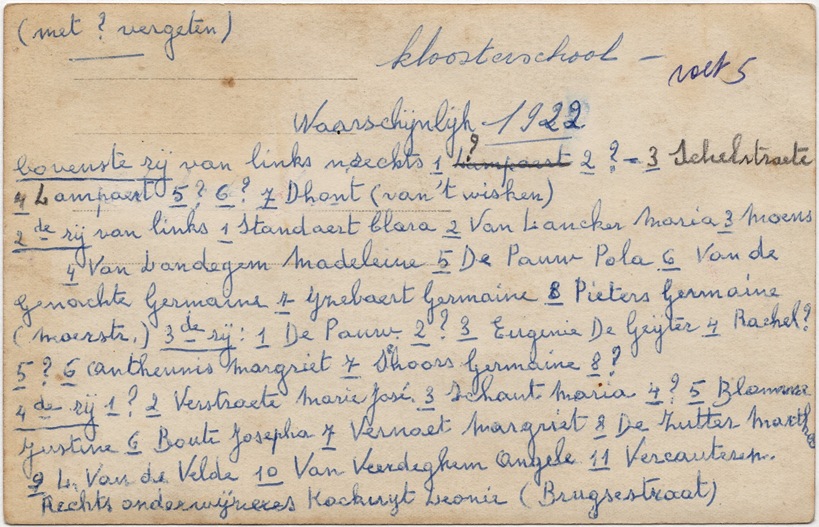 (met ? vergeten)
kloosterschool - noet 5
Waarschijnlijk 1922
bovenste rij van links n rechts 1 ? Lampaert 2 ? - 3 Schelstraete
4 Lampaert 5? 6? 7 Dhont (van 't wisken)
2de rij van links 1 Standaert Clara 2 Van Lancker Maria 3 Moens
4 Van Landegem Madeleine 5 De Pauw Pola 6 Van de
Genachte Germaine 7 Ysebaert Germaine 8 Pieters Germaine
(Moerstr.) 3de rij: 1 De Pauw. 2? 3 Eugenie De Geyter 4 Rachel?
5? 6 Antheunis Margriet 7 D'hoors Germaine 8?
4de rij 1? 2 Verstraete Marie José. 3 Schaut Maria 4? 5
Justine 6 Boute Josepha 7 Vernaet Margriet 8 De Zutter Martha
9 Van de Velde 10 Van Veerdeghem Angele 11 Vercauteren.
Rechts onderwijzeres Kockuyt Leonie (Brugsestraat)